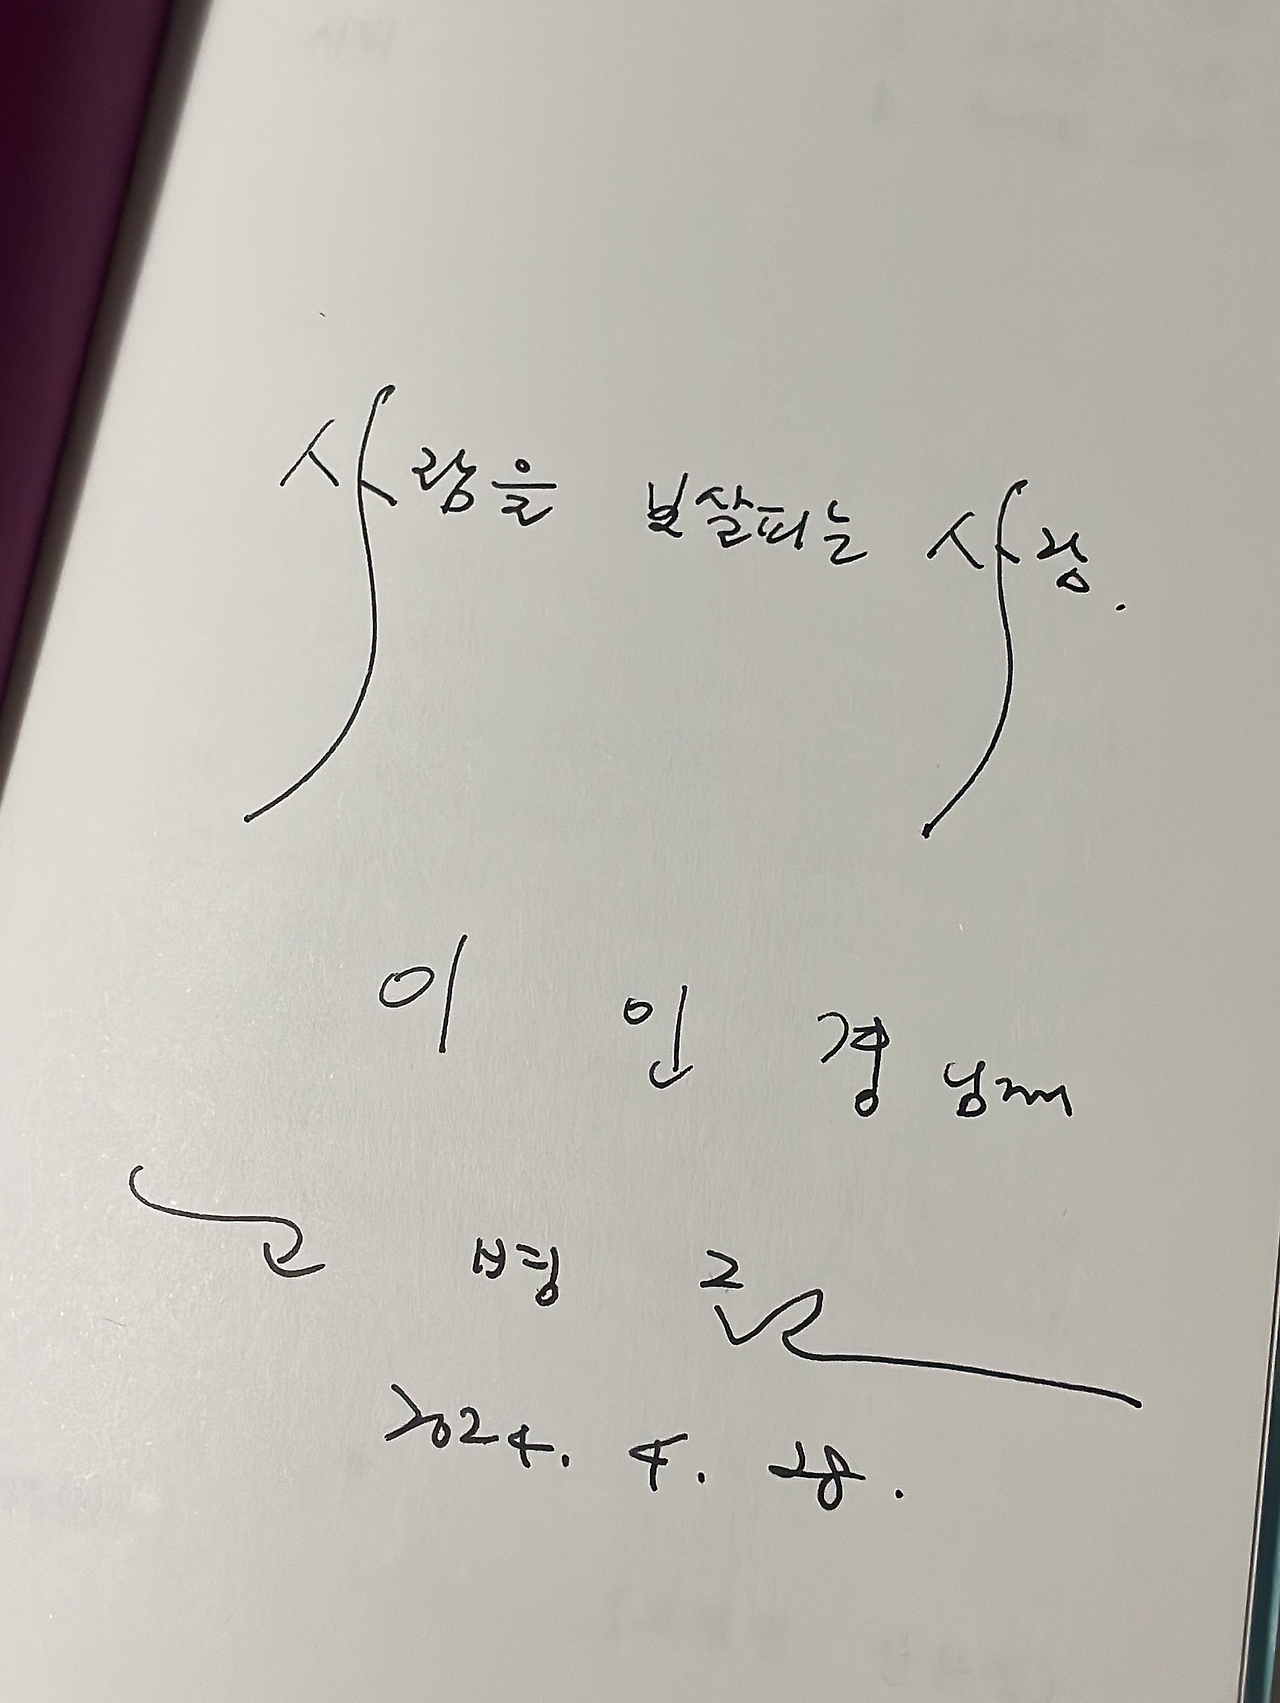 사람을 보살피는 사람.
이 인 경 님께
고 병 권
2024. 4. 28.